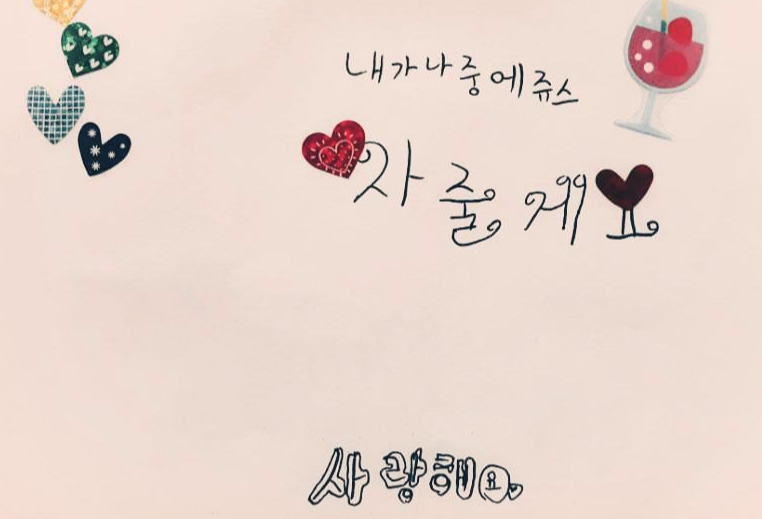 내가 나중에 쥬스
사줄게요
사랑해요